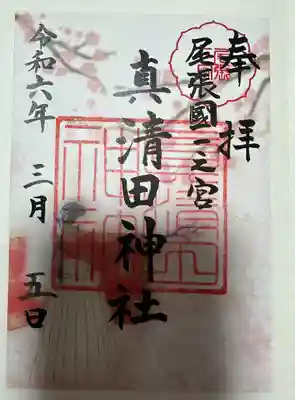 奉拝
尾張國一之宮
真清田神社
令和六年 三月 五日